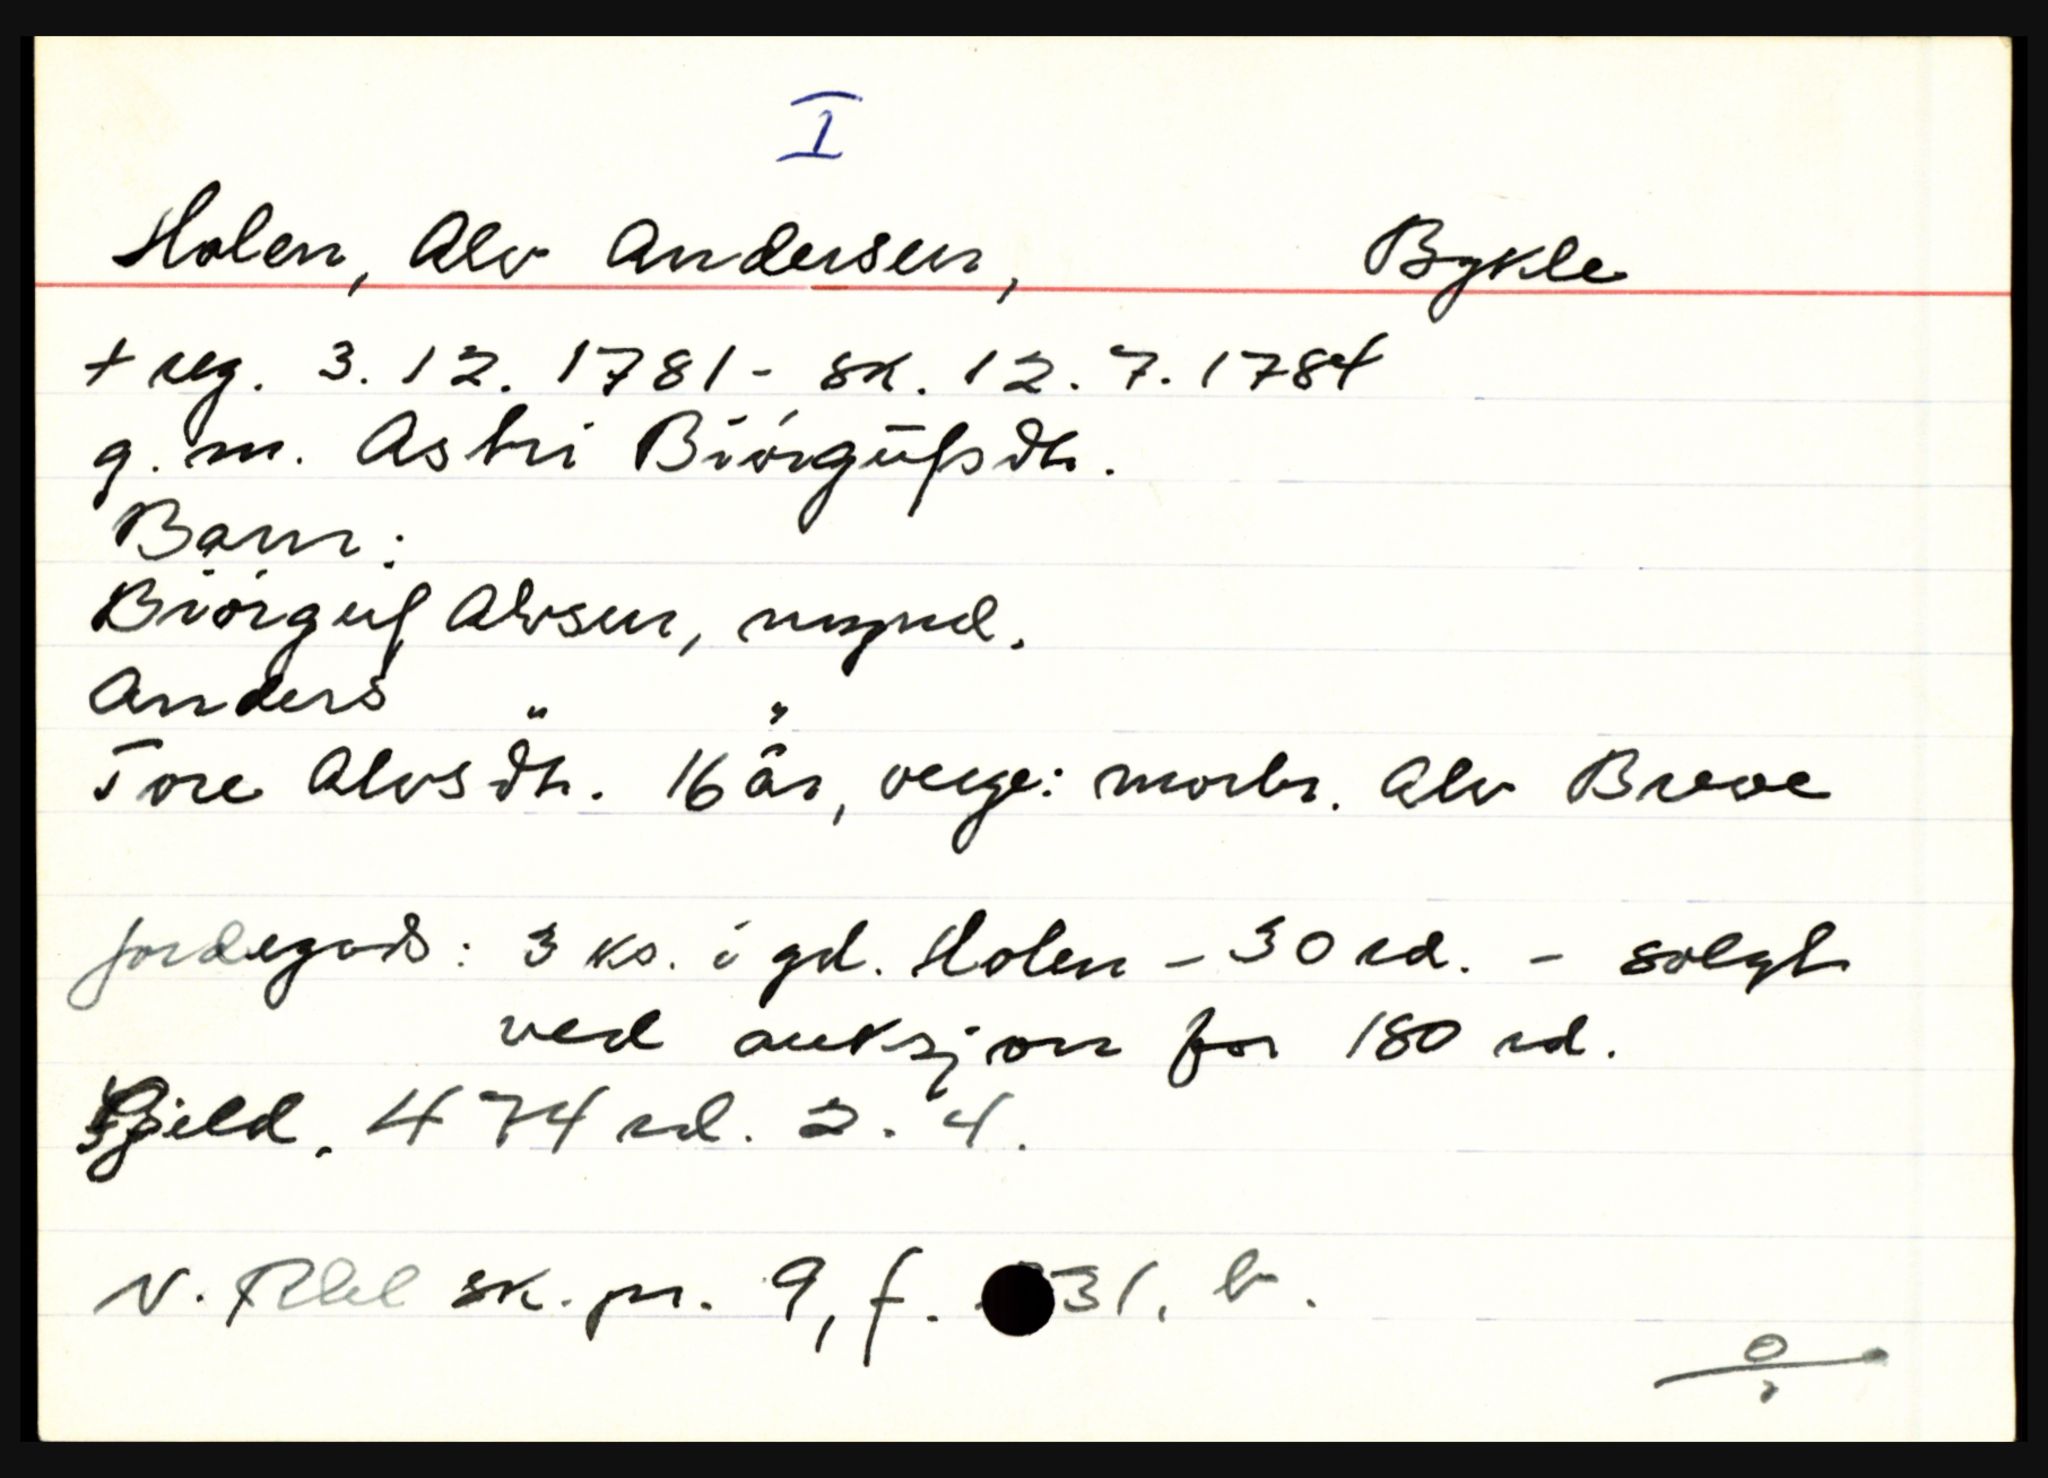 I
Holen, Alv Andersen, Bykle
+ reg. 3.12.1781 - sk. 12.7.1784
g.m. Astri Biörgufsdtr.
Barn:
Biörguf Alvsen, mynd.
Anders " "
Tore Alvsdtr. 16 år, verge: morbr. Alv Breve
Jordegods: 3 ks. i gd. Holen - 30 rd. - solgt
ved auksjon for 180 rd.
Gjeld. 474 rd. 2. 4.
N. Rbl sk. pr. 9, f. 31. b.